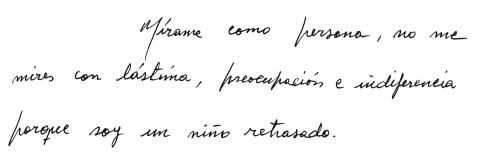 Mírame como persona, no me
mires con lástima, preocupación e indiferencia
porque soy un niño retrasado.